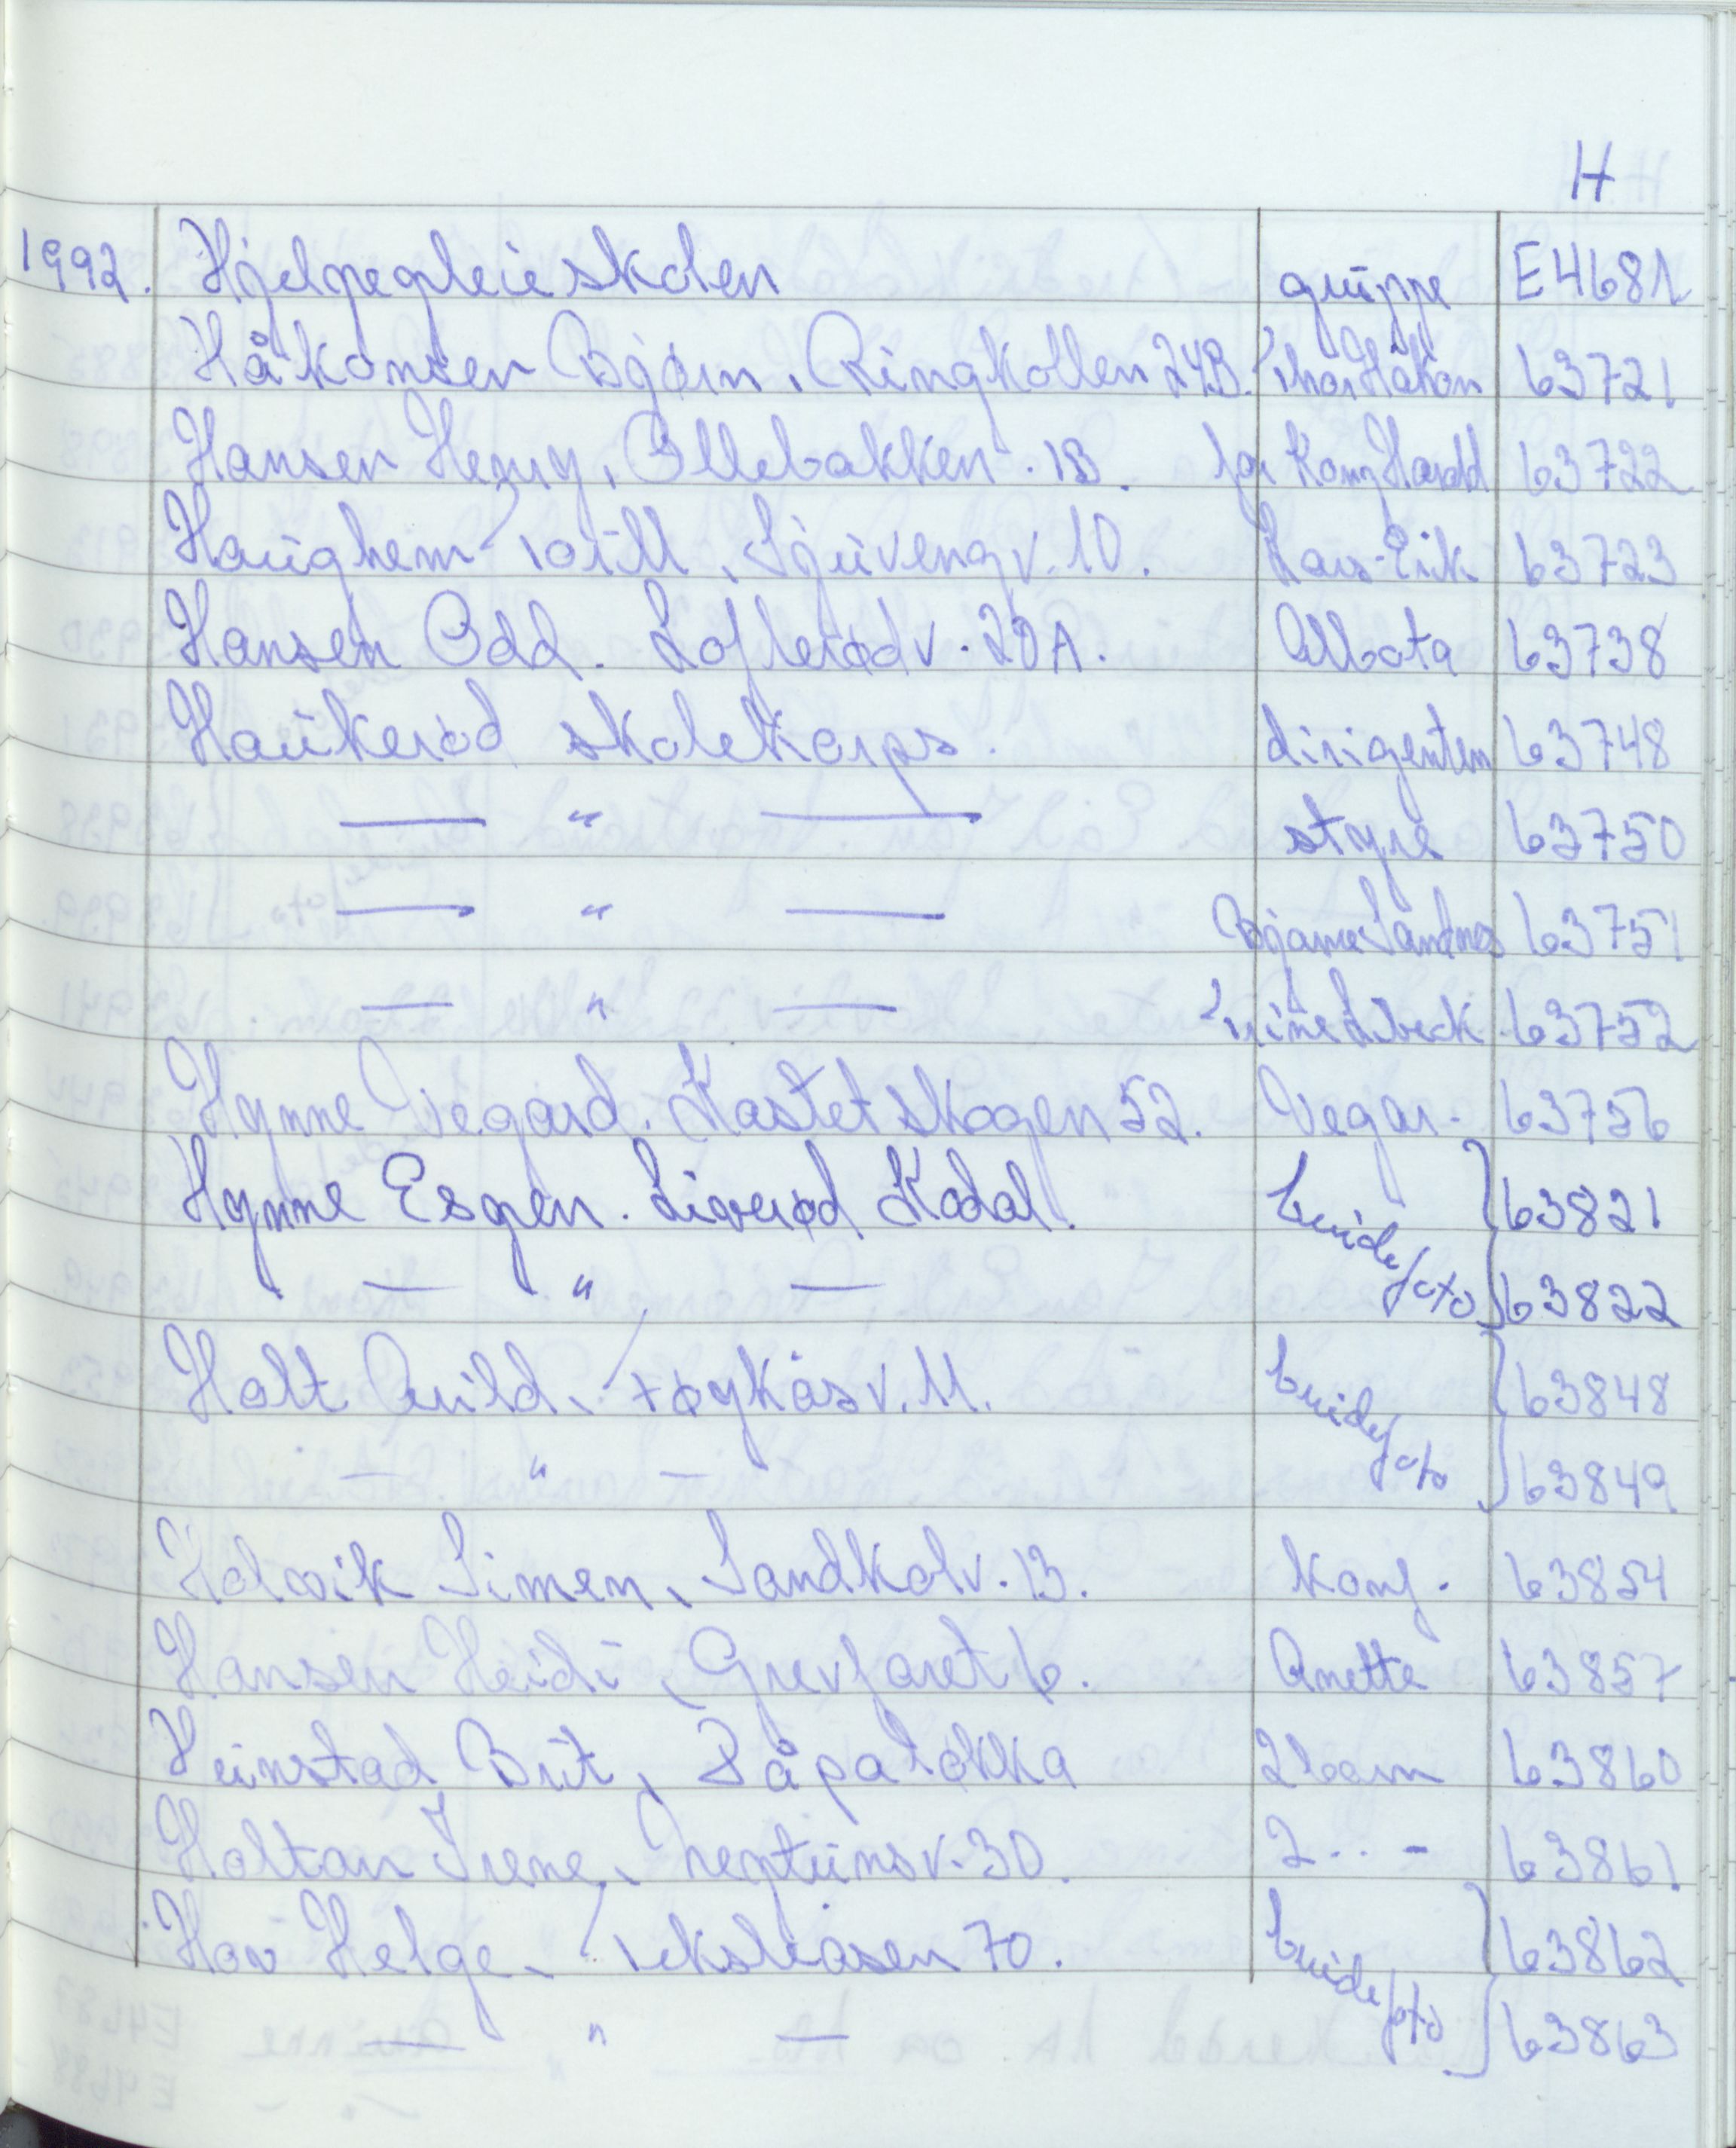 H
1992. Hjelpepleieskolen gruppe E4681
Håkonsen Bjørn, Ringkollen 24B. Thor Håkon 63721
Hansen Henry, Ollebakken 1B. for Konf Harald 63722
Haughem Torill, Sjuvengv. 10. Lars-Erik 63723
Hansen Odd. Lofterødv. 20A. Albota 63738
Haukerød skolekorps. dirigenten 63748
— " — styre 63750
— " — Bjarne Sandnes 63751
— " — Trine 63752
Hynne Vegard. Kastetskogen 52. Vegar. 63756
Hynne Espen. Liverød Kodal. brude 63821
— " — foto 63822
Holt Arild, Trykåsv. 11. brude 63848
— " — foto 63849
Holwik Simen, Sandkolv. 13. Konf. 63854
Hansen Heidi, Grevfaret 6. Anette 63857
Heimstad Brit, Råpaløkka 2 barn 63860
Holtan Irene, Neptunsv. 30. 2 .. - 63861
Hov Helge, Veksleåsen 70. brude 63862
— " — foto 63863